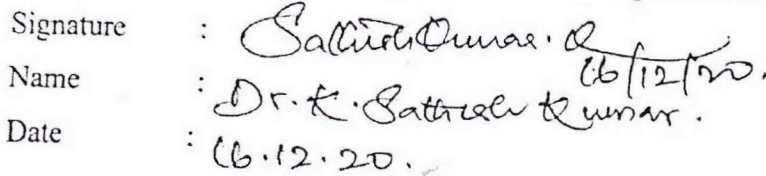 Signature : Sathish Kumar. K
16/12/20.
Name : Dr. K. Sathish Kumar.
Date : 16.12.20.